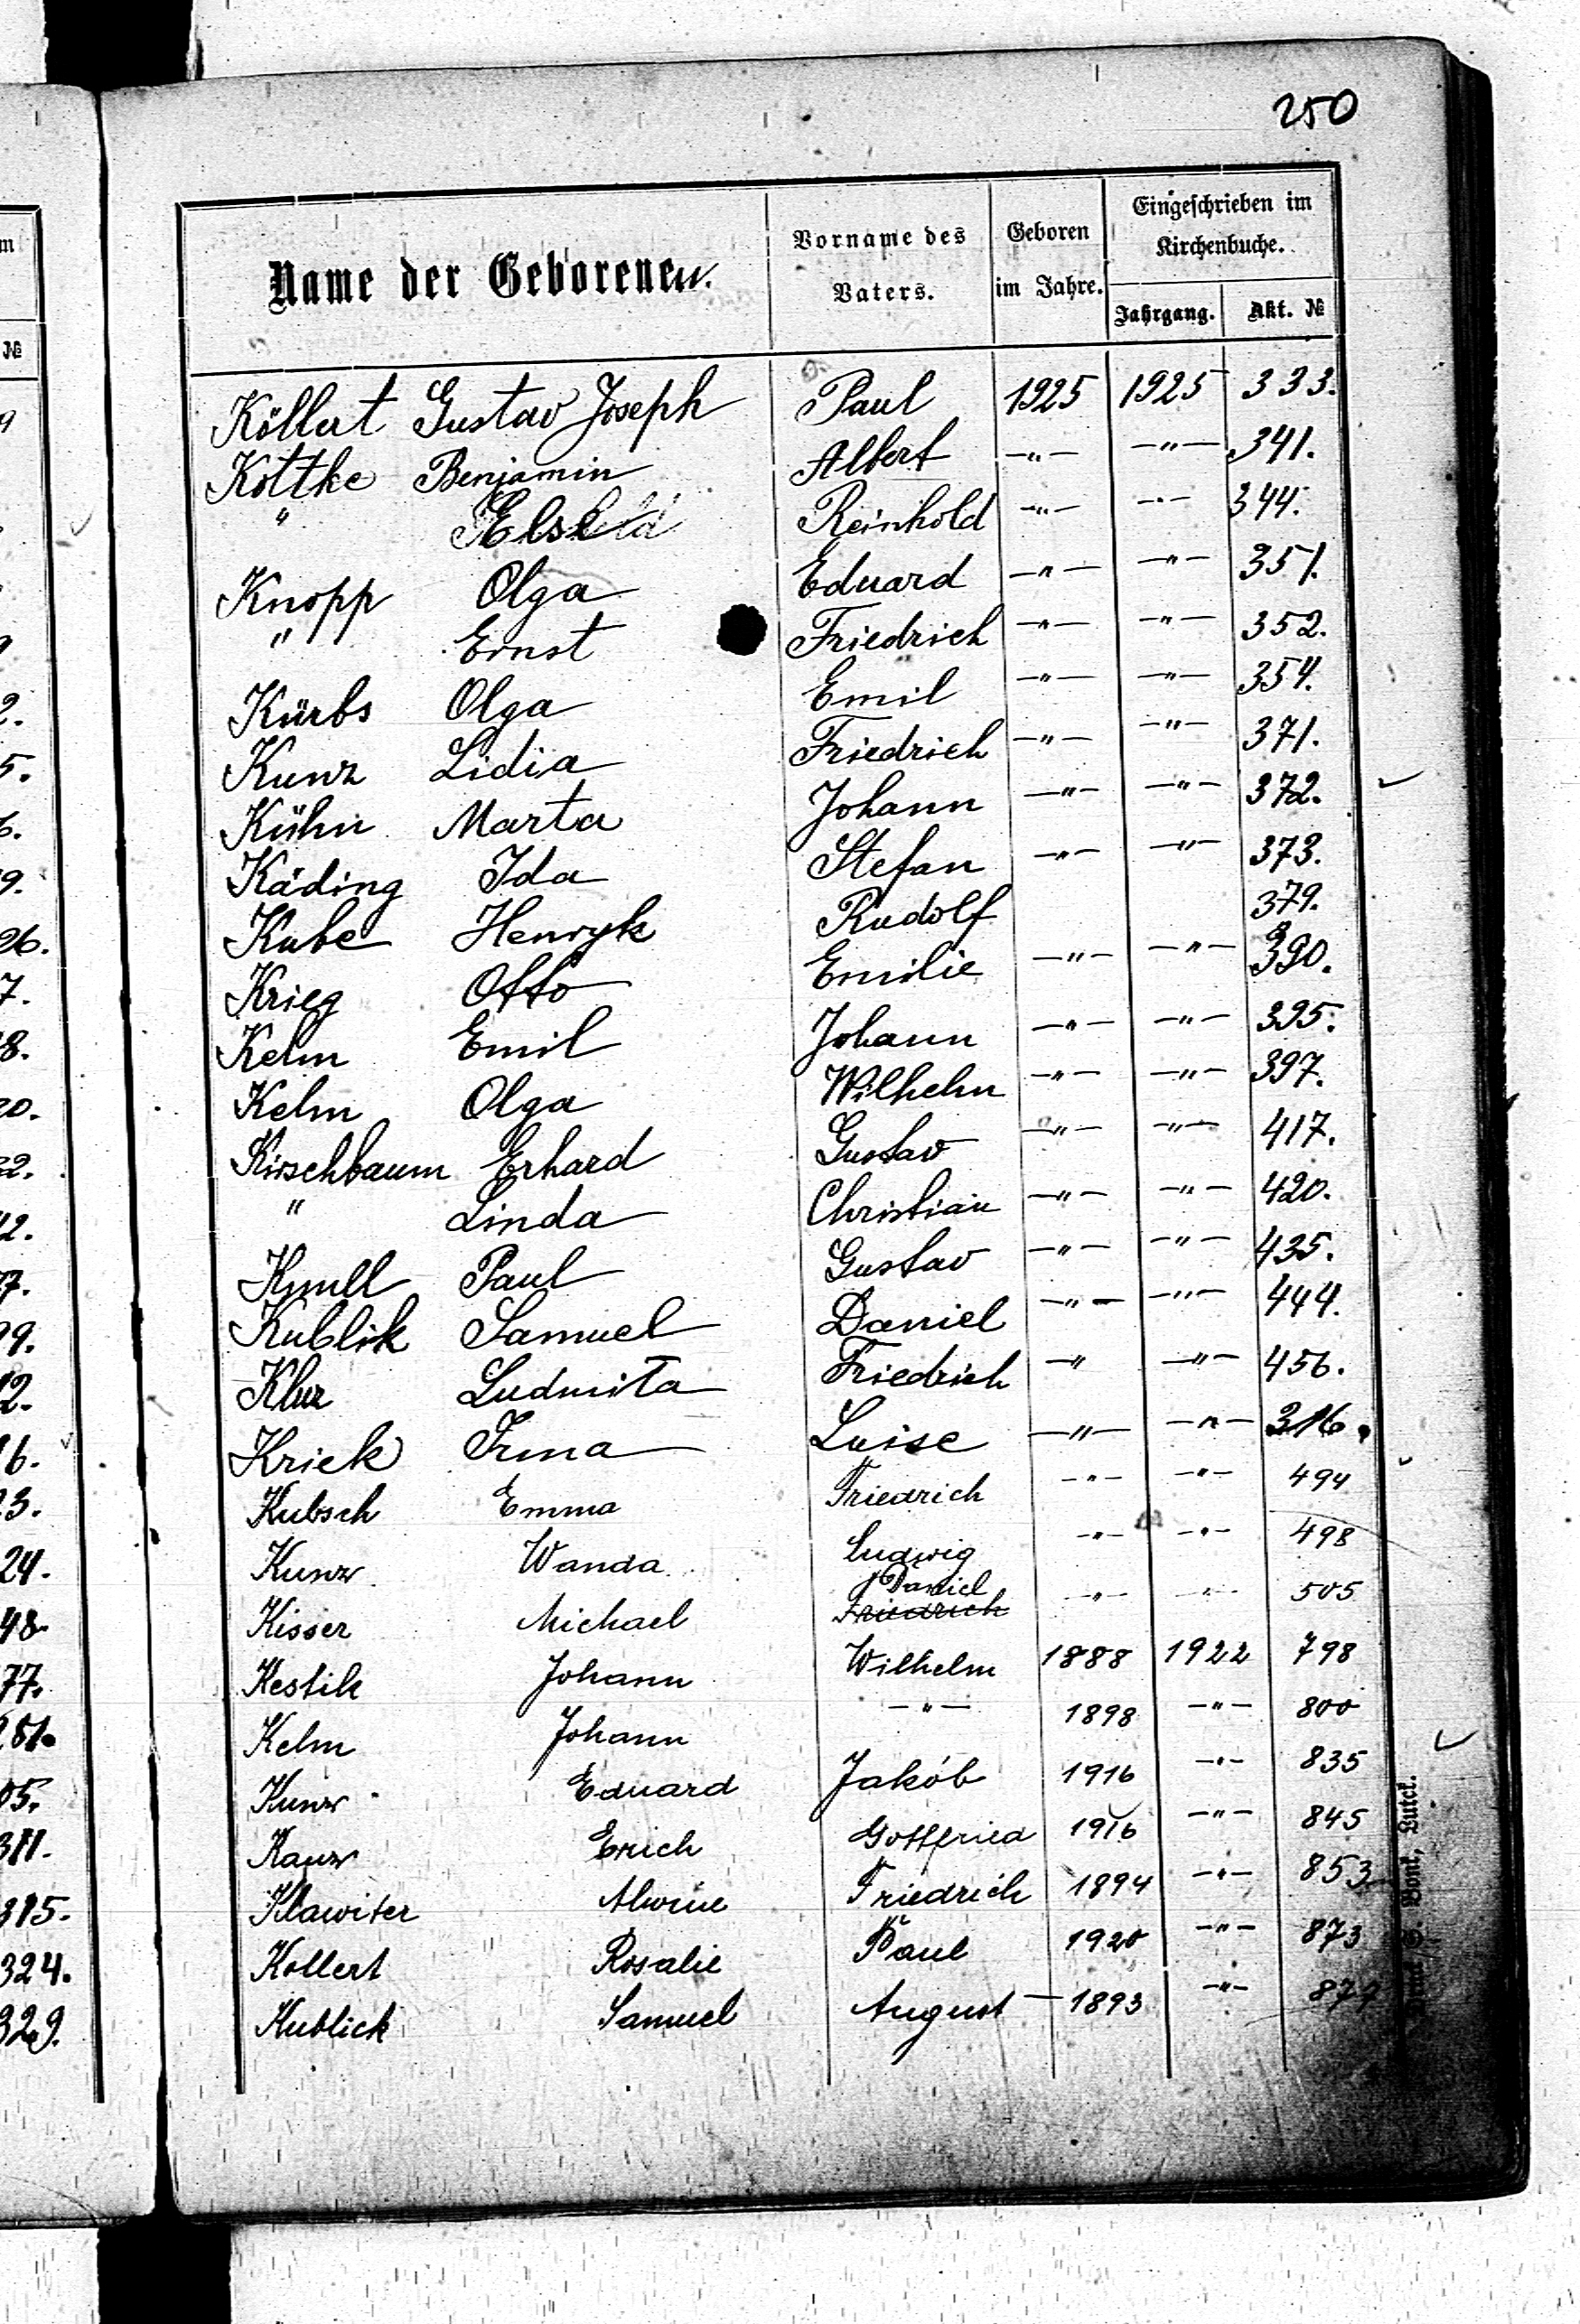 250
Name der Geborenen.
Vorname des Vaters.
Geboren im Jahre.
Eingeschrieben im Kirchenbuche.
Jahrgang. Akt. №
Köllert Gustav Joseph Paul 1925 1925 333.
Kottke Benjamin Albert -"- -"- 341.
" Else Reinhold -"- -"- 344.
Knopp Olga Eduard -"- -"- 351.
" Ernst Friedrich -"- -"- 352.
Kürbs Olga Emil -"- -"- 354.
Kunz Lidia Friedrich -"- -"- 371.
Kühn Marta Johann -"- -"- 372.
Käding Ida Stefan -"- -"- 373.
Kube Henryk Rudolf 379.
Krieg Otto Emilie -"- -"- 390.
Kelm Emil Johann -"- -"- 395.
Kelm Olga Wilhelm -"- -"- 397.
Kirschbaum Erhard Gustav -"- -"- 417.
" Linda Christian -"- -"- 420.
Knull Paul Gustav -"- -"- 435.
Kublik Samuel Daniel -"- -"- 444.
Ludmiła Friedrich -" -"- 456.
Kriek Irma Luise -"- -"- 316.
Kubsch Emma Friedrich -"- -"- 494
Kunz Wanda Ludwig -"- -"- 498
Kisser Michael Daniel Friedrich -"- -"- 505
Kestik Johann Wilhelm 1888 1922 798
Kelm Johann -"- 1898 -"- 800
Kunz Eduard Jakób 1916 -"- 835
Kanz Erich Gottfried 1916 -"- 845
Klawiter Alwine Friedrich 1894 -"- 853
Kollert Rosalie Paul 1920 -"- 873
Kublick Samuel August 1893 -"- 879
9
2.
5.
6.
9.
26.
7.
8.
20.
22.
42.
77.
99.
12.
16.
23.
24.
48.
77.
281.
05.
311.
315.
324.
329.